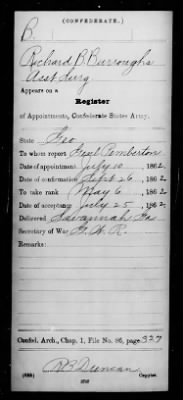 (CONFEDERATE.)
B.
Richard B. Burroughs
Asst Surg
Appears on a
Register
of Appointments, Confederate States Army.
State Geo
To whom report Genl Pemberton
Date of appointment July 10, 1862.
Date of confirmation Sept 26, 1862
To take rank May 6, 1862
Date of acceptance July 25, 1862.
Delivered Savannah Ga
Secretary of War G. W. R.
Remarks:
Confed. Arch., Chap. 1, File No. 86, page 327
R B Duncan
Copyist.